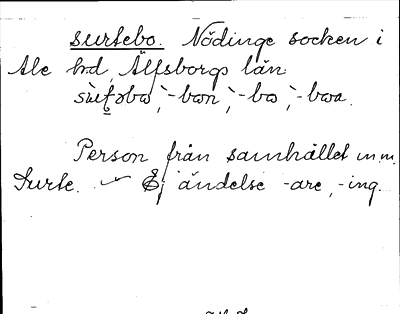 surtebo. Nödinge socken i
Ale hd, Älfsborgs län
-bwn, -bw, -bwa.
Person från samhället m.m.
Surte. Ej ändelse -are, -ing.